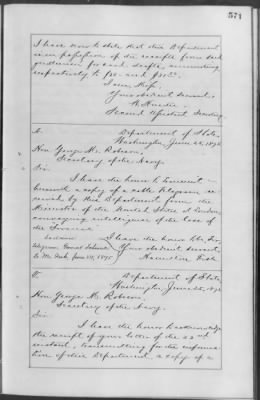 571
I have now to state that this Department
is in possession of the receipts from said
gentlemen for said drafts, amounting
respectively to
I am, Sir,
Your obedient servant,
W. Hunter
Second Assistant Secretary.
Department of State,
Washington, June 22, 187
Hon. George M. Robeson,
Secretary of the Navy.
Sir:
I have the honor to transmit
herewith a copy of a cable telegram re-
ceived by this Department from the
Minister of the United States at London,
conveying intelligence of the loss of
the "Saranac".
I have the honor to be, Sir,
Your obedient servant,
Hamilton Fish
Department of State,
Washington, June 25, 187
Hon. George M. Robeson,
Secretary of the Navy.
Sir:
I have the honor to acknowledge
the receipt of your letter of the 22nd
instant, transmitting for the informa-
tion of this Department a copy of a